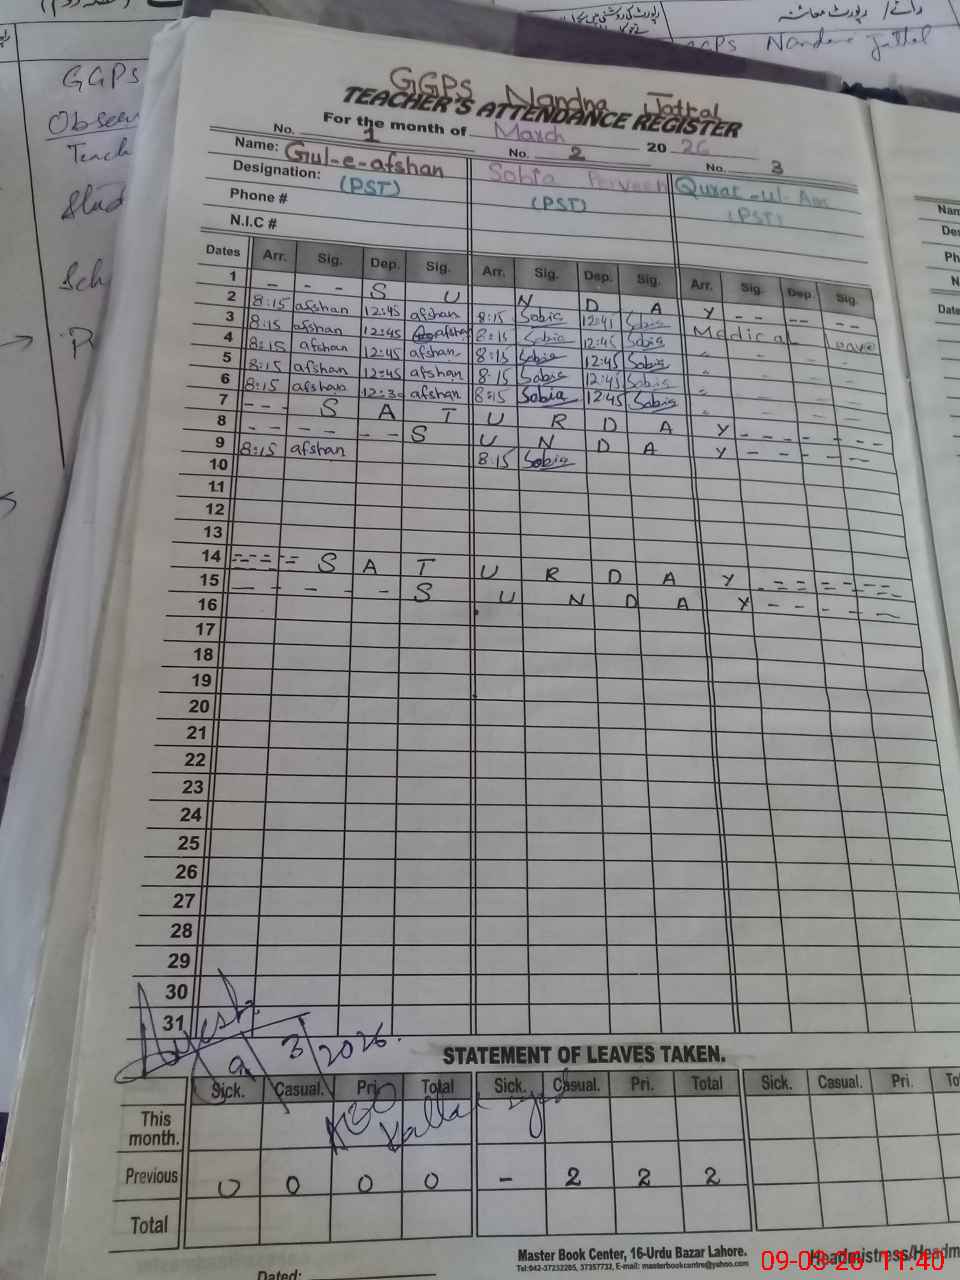 رپورٹ معائنہ
GGPS Nandna Jattal
GGPS
Observ
Teach
Stud
Sch
GGPS Nandna Jattal
TEACHER'S ATTENDANCE REGISTER
For the month of March 2026
No. 1 No. 2 No. 3
Name: Gul-e-afshan Sobia Perveen Qurat-ul-Ain
Designation: (PST) (PST) (PST)
Phone #
N.I.C #
Dates Arr. Sig. Dep. Sig. Arr. Sig. Dep. Sig. Arr. Sig. Dep. Sig.
1 - - - S U N D A Y - - - - - -
2 8:15 afshan 12:45 afshan 8:15 Sobia 12:45 Sobia Medical Leave
3 8:15 afshan 12:45 afshan 8:15 Sobia 12:45 Sobia
4 8:15 afshan 12:45 afshan 8:15 Sobia 12:45 Sobia
5 8:15 afshan 12:45 afshan 8:15 Sobia 12:45 Sobia
6 8:15 afshan 12:30 afshan 8:15 Sobia 12:45 Sobia
7 - - - S A T U R D A Y - - - - - - -
8 - - - - - - S U N D A Y - - - - -
9 8:15 afshan 8:15 Sobia
10
11
12
13
14 = = = = S A T U R D A Y - = = = = =
15 - - - - - S U N D A Y - - - - -
16
17
18
19
20
21
22
23
24
25
26
27
28
29
30
31
9/3/2026.
STATEMENT OF LEAVES TAKEN.
Sick. Casual. Pri. Total Sick. Casual. Pri. Total Sick. Casual. Pri. To
This month.
Previous 0 0 0 0 - 2 2 2
Total
Master Book Center, 16-Urdu Bazar Lahore.
Tel:042-37232205, 37357732, E-mail: masterbookcantre@yahoo.com
Dated:
Headmistress/Headm
09-03-26 11:40